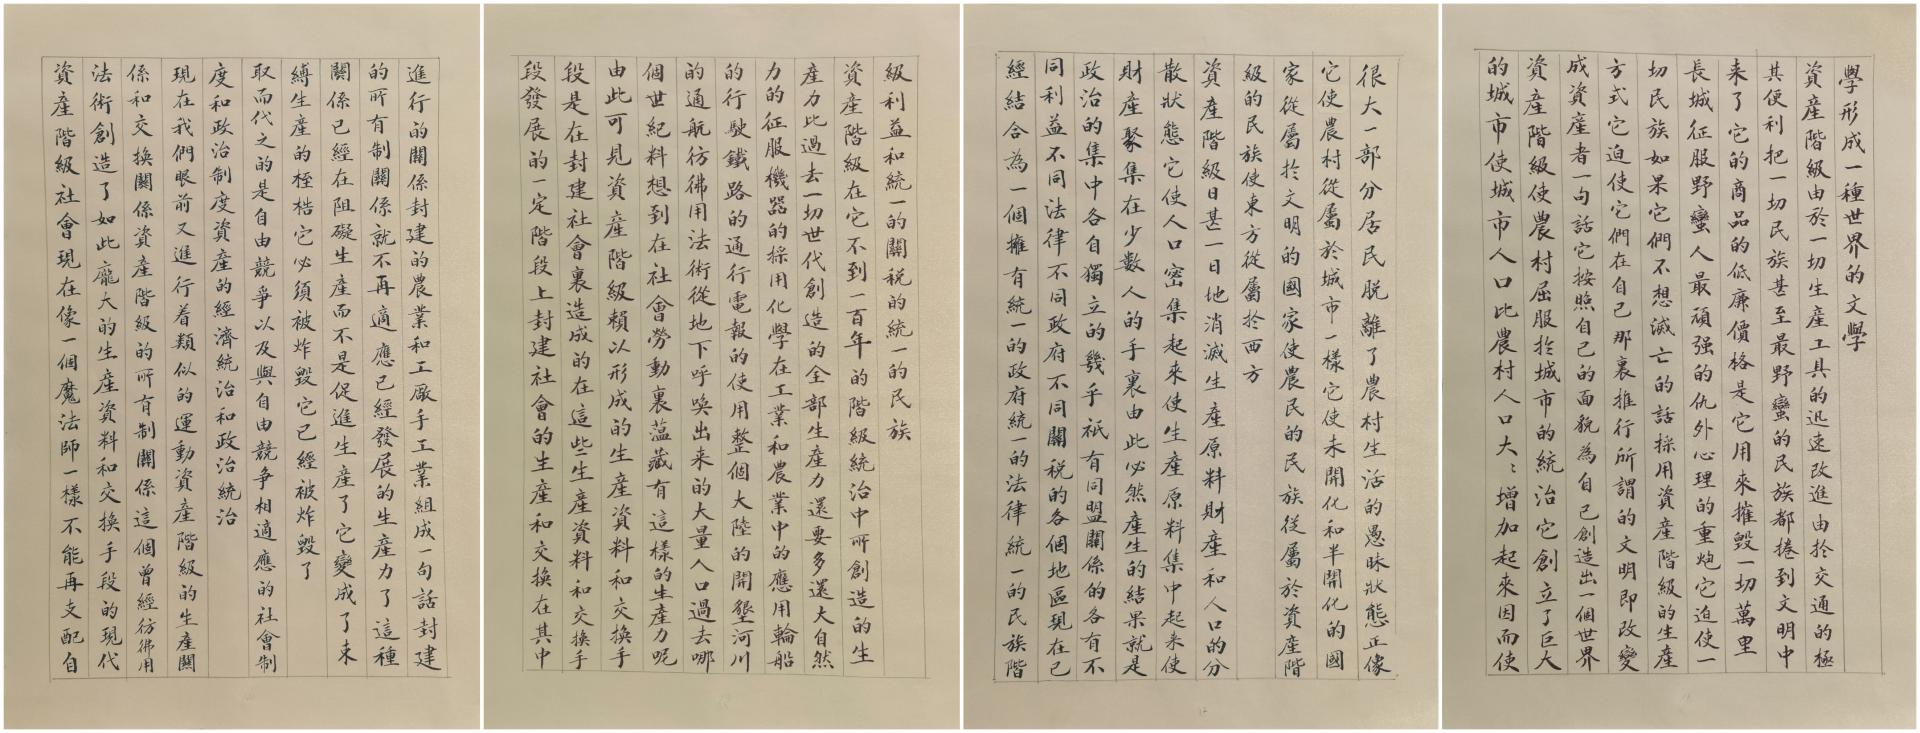 學形成一種世界的文學
資產階級由於一切生產工具的迅速改進由於交通的極
其便利把一切民族甚至最野蠻的民族都捲到文明中
来了它的商品的低廉價格是它用來摧毀一切萬里
長城征服野蠻人最頑强的仇外心理的重炮它迫使一
切民族如果它們不想滅亡的話採用資產階級的生產
方式它迫使它們在自己那裏推行所謂的文明即改變
成資產者一句話它按照自己的面貌為自己創造出一個世界
資產階級使農村屈服於城市的統治它創立了巨大
的城市使城市人口比農村人口大:增加起來因而使
很大一部分居民脱離了農村生活的愚昧狀態正像
它使農村從屬於城市一樣它使未開化和半開化的國
家從屬於文明的國家使農民的民族從屬於資產階
級的民族使東方從屬於西方
資產階級日甚一日地消滅生產原料財產和人口的分
散狀態它使人口密集起來使生產原料集中起来使
財產聚集在少數人的手裏由此必然產生的結果就是
政治的集中各自獨立的幾乎祇有同盟關係的各有不
同利益不同法律不同政府不同關税的各個地區現在已
經結合為一個擁有統一的政府統一的法律統一的民族階
級利益和統一的關税的統一的民族
資產階級在它不到一百年的階級統治中所創造的生
產力比過去一切世代創造的全部生產力還要多還大自然
力的征服機器的採用化學在工業和農業中的應用輪船
的行駛鐵路的通行電報的使用整個大陸的開墾河川
的通航彷彿用法術從地下呼喚出来的大量人口過去哪
個世紀料想到在社會勞動裏蕴藏有這樣的生產力呢
由此可見資產階級賴以形成的生產資料和交換手
段是在封建社會裏造成的在這些生產資料和交換手
段發展的一定階段上封建社會的生產和交換在其中
進行的關係封建的農業和工廠手工業組成一句話封建
的所有制關係就不再適應已經發展的生產力了這種
關係已經在阻礙生產而不是促進生產了它變成了束
縛生產的桎梏它必須被炸毀它已經被炸毀了
取而代之的是自由競爭以及與自由競爭相適應的社會制
度和政治制度資產的經濟統治和政治統治
現在我們眼前又進行着類似的運動資產階級的生產關
係和交換關係資產階級的所有制關係這個曾經彷彿用
法術創造了如此龐大的生產資料和交換手段的現代
資產階級社會現在像一個魔法師一樣不能再支配自